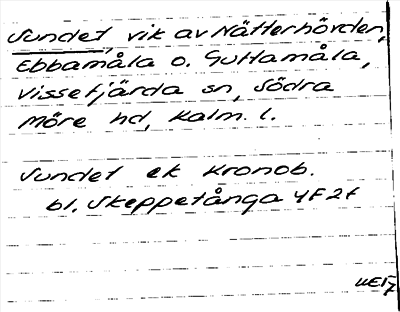 Sundet, vik av Nätterhövden,
Ebbamåla o. Guttamåla,
Vissefjärda sn, Södra
Möre hd, Kalm. l.
Sundet ek Kronob.
bl. Skeppetånga 4F2f